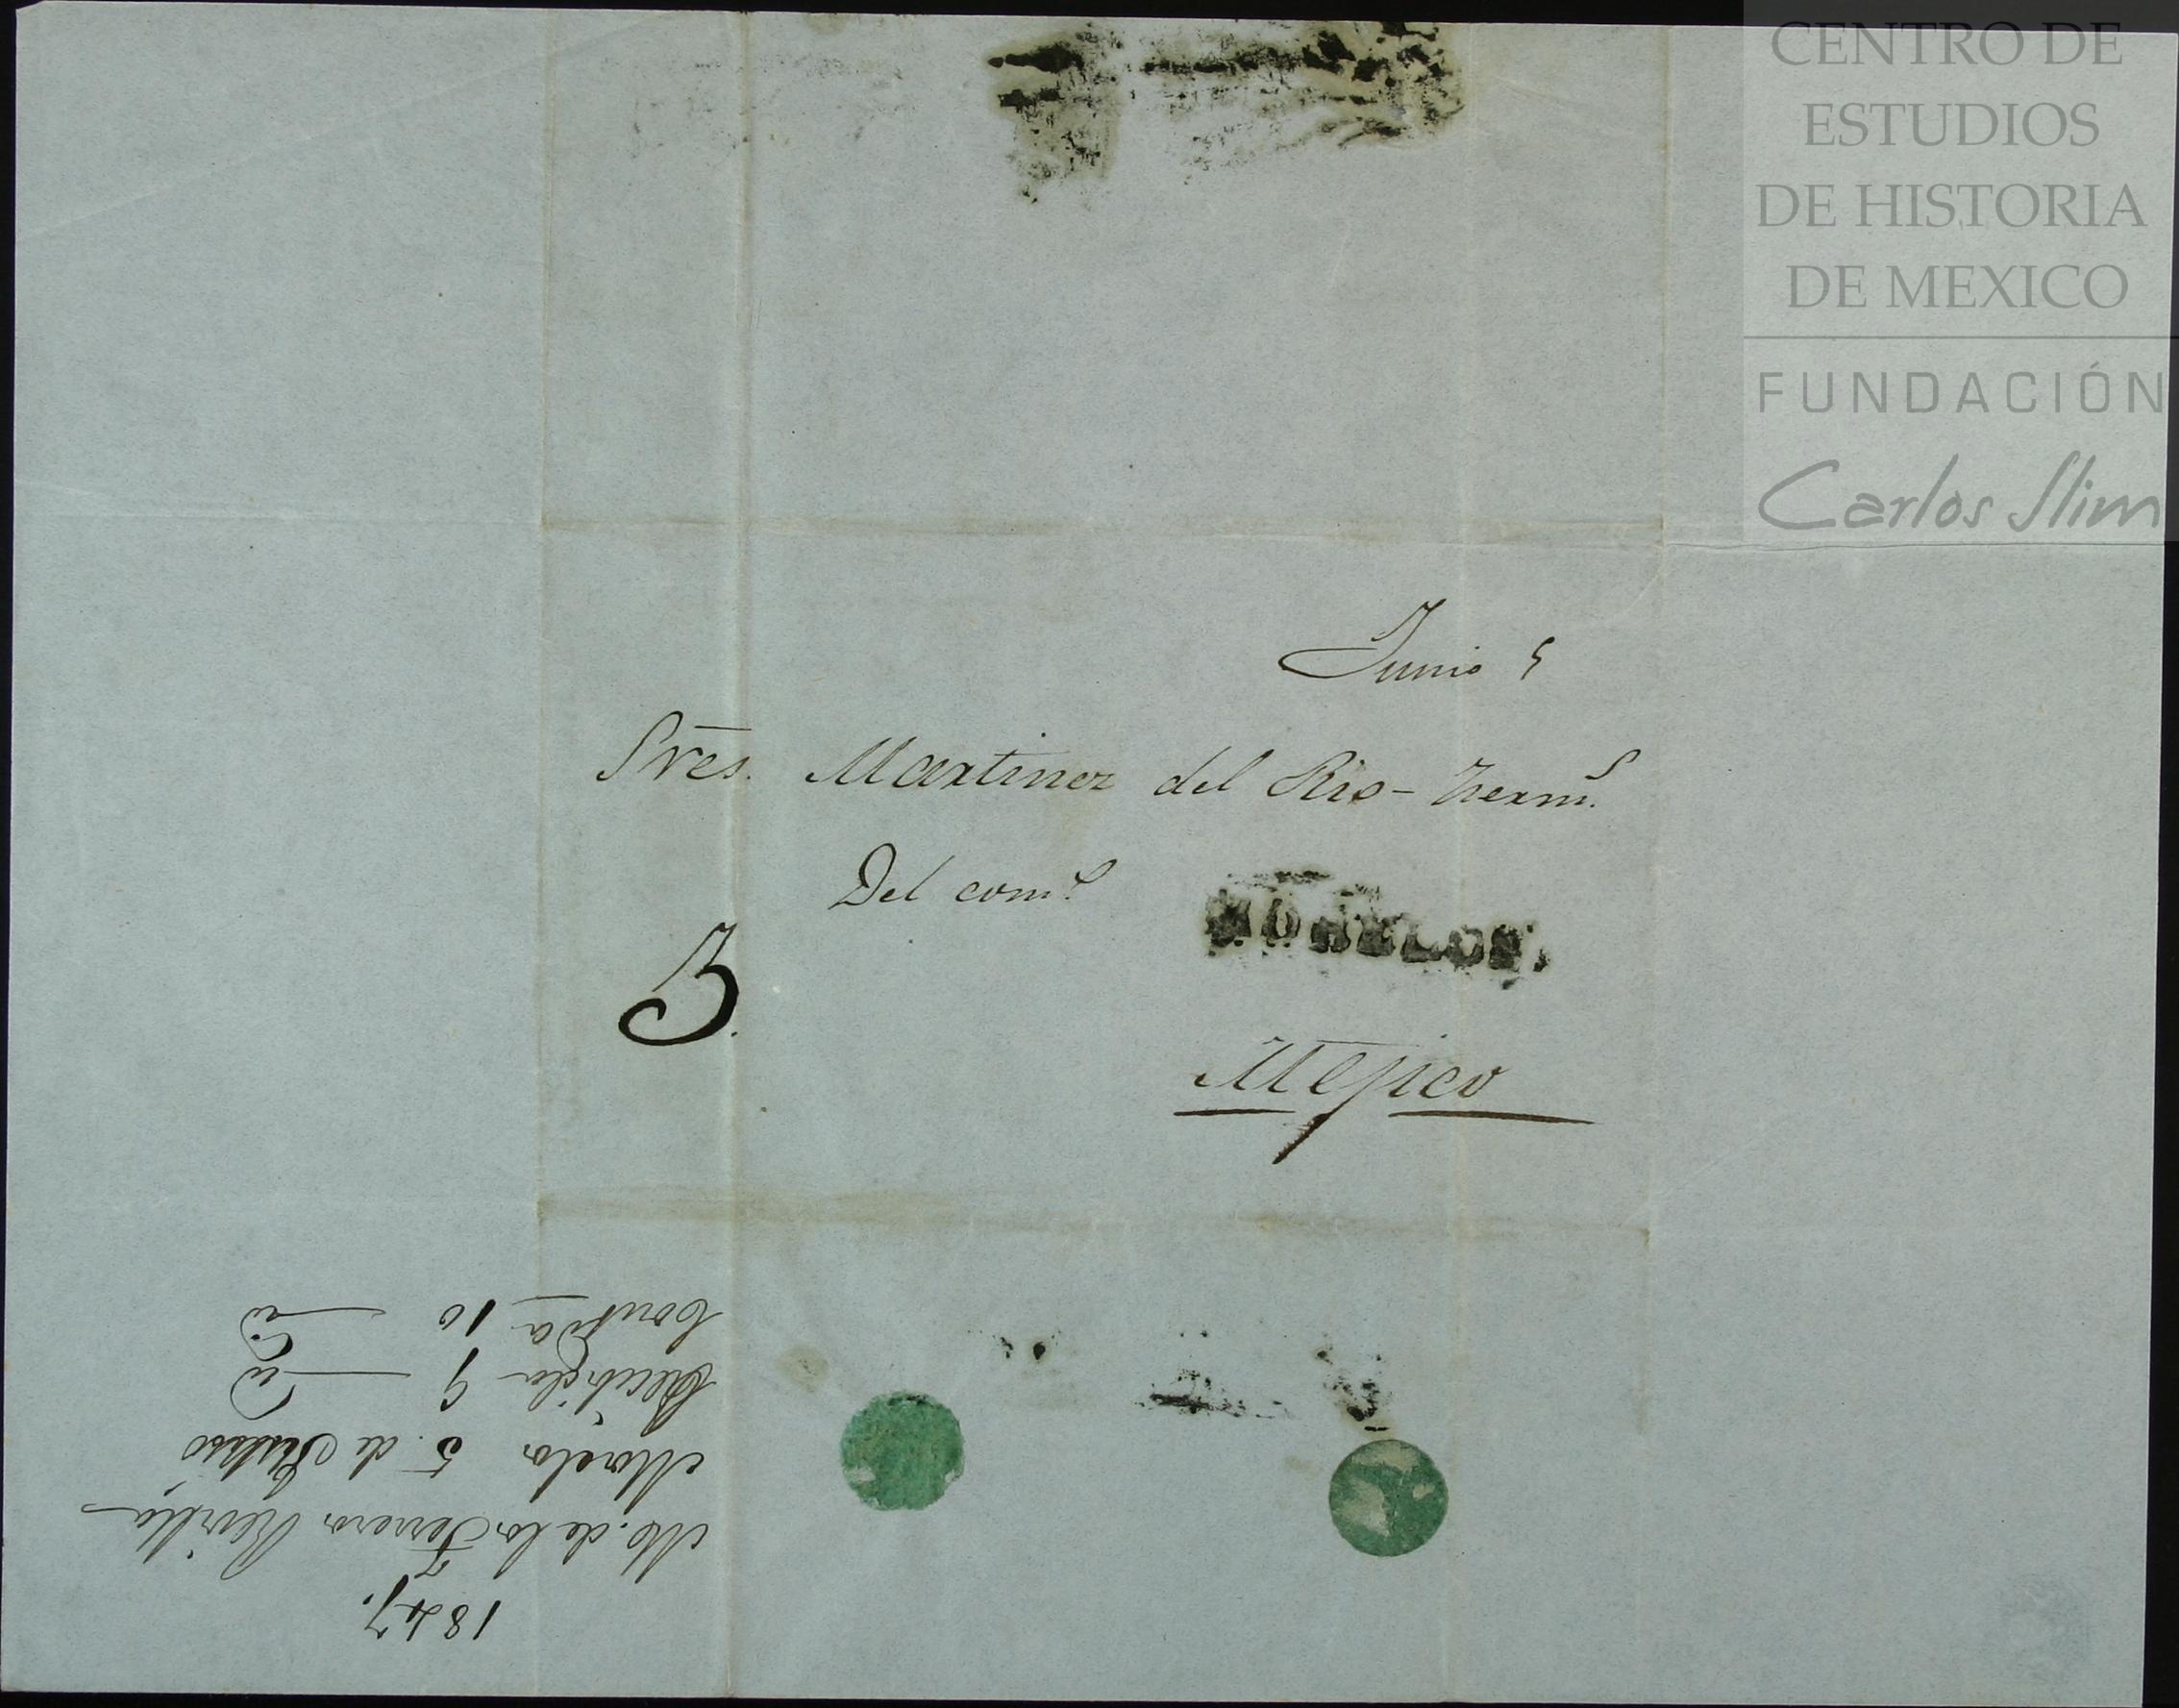 CENTRO DE
ESTUDIOS
DE HISTORIA
DE MEXICO
FUNDACIÓN
Carlos Slim
Junio 5
Sres. Martinez del Rio - herms.
Del como.
3.
MORELOS.
Mejico
1847.
M. de la Torre
Morelos 5. de
Recibida 9 — id
Contda 10 — id